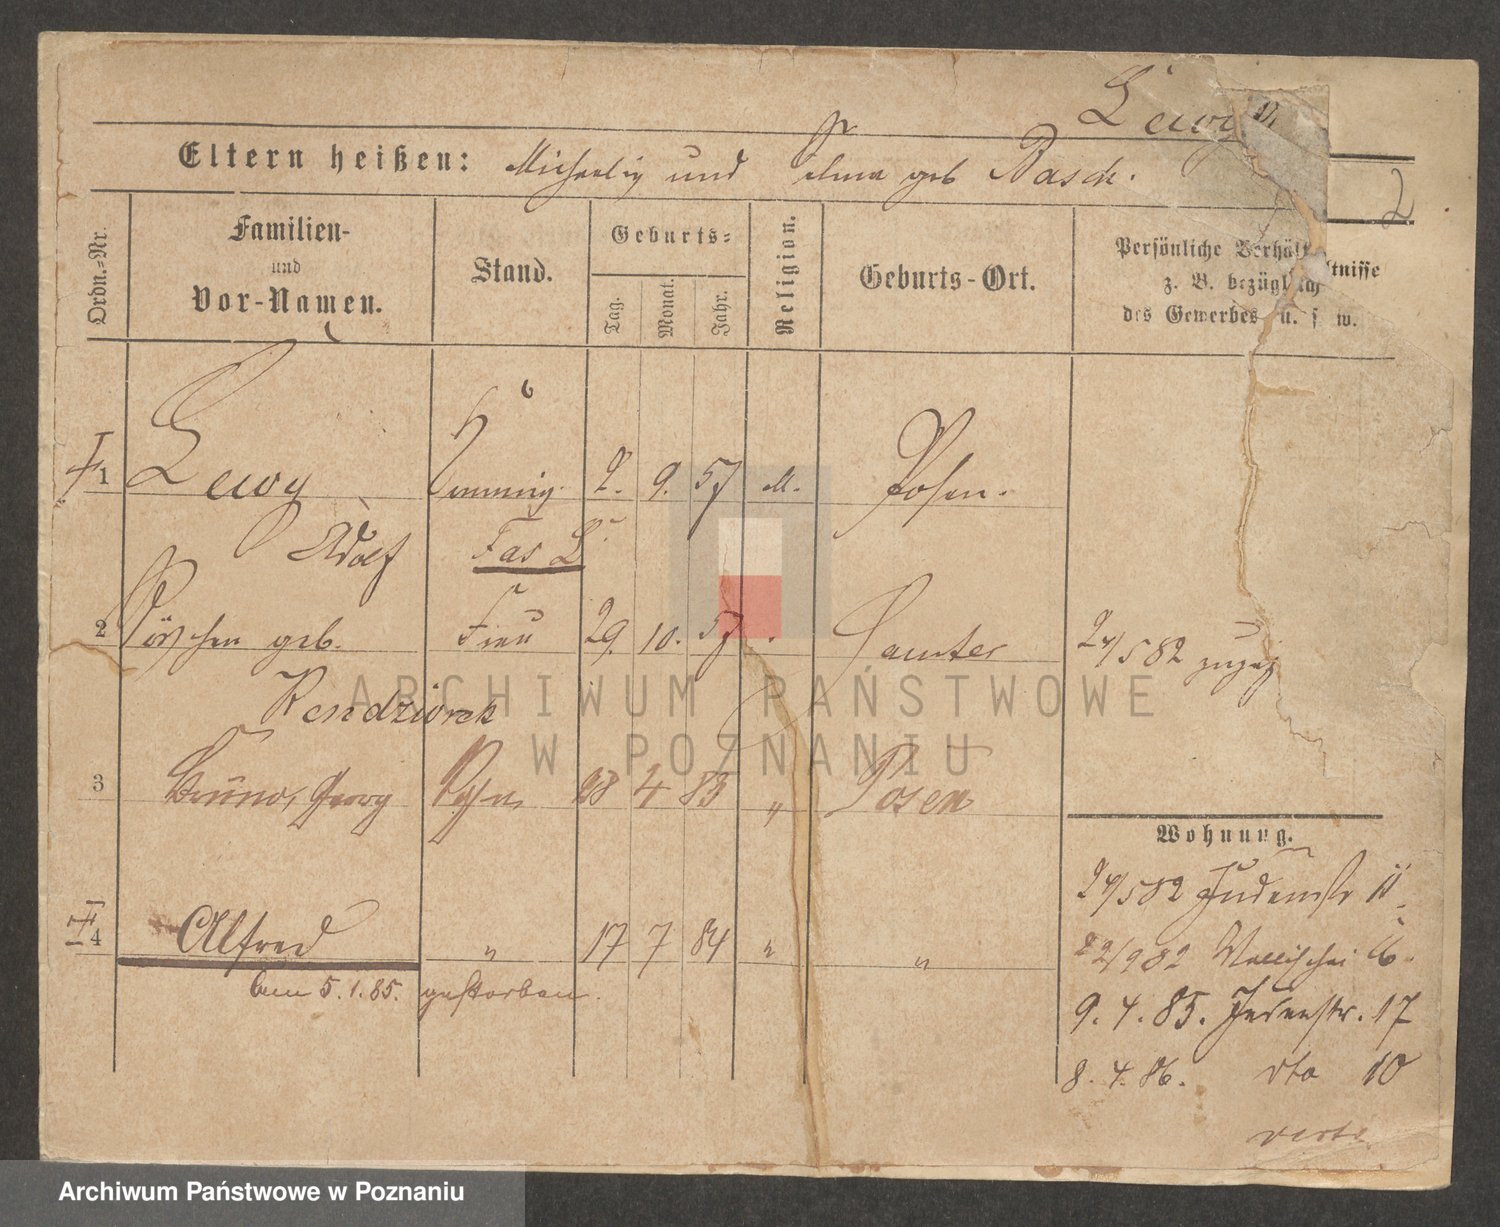 Lewy
Eltern heißen: Michaelis und Selma geb Basch.
2
Ordn.-Nr.
Familien-
und
Vor-Namen.
Stand.
Geburts-
Tag.
Monat.
Jahr.
Religion.
Geburts-Ort.
Persönliche Verhältnisse
z. B. bezüglich
des Gewerbes u. s. w.
1 Lewy 9. 57 M. Posen.
Adolf
2 geb. Frau 29. 10. 57 Samter 24/5 82
Kendziorek
3 Bruno, Georg Sohn 28 4 83 " Posen
Wohnung.
24/5 82 Judenstr 11.
4 Alfred " 17 7 84 " "
22/9 82 Wallischei
am 5.1.85. gestorben.
9. 4. 85. Judenstr. 17
8. 4. 86. dto 10
ARCHIWUM PAŃSTWOWE
W POZNANIU
Archiwum Państwowe w Poznaniu